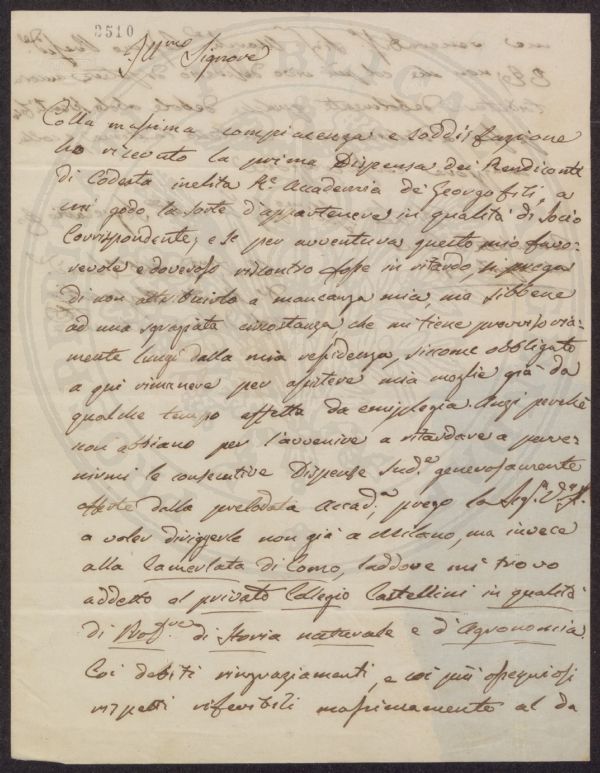 3510
Ill.mo Signore
Colla massima compiacenza e soddisfazione
ho ricevuto la prima Dispensa dei Rendiconti
di Codesta inclita R.e Accademia de' Georgofili, a
cui godo la sorte d'appartenere in qualità di Socio
Corrispondente; e se per avventura questo mio favo-
revole e doveroso riscontro fosse in ritardo, si prega
di non attribuirlo a mancanza mia, ma sibbene
ad una sgraziata circostanza che mi tiene provvisoria-
mente lungi dalla mia residenza, siccome obbligato
a qui rimanere per assistere mia moglie già da
qualche tempo affetta da emiplegia. Anzi perchè
non abbiano per l'avvenire a ritardare a perve-
nirmi le consecutive Dispense Sud.e generosamente
offerte dalla prelodata Accad.a, prego la Sig.a V.a
a voler dirigerle non già a Milano, ma invece
alla Camerlata di Como, laddove mi trovo
addetto al privato Collegio Castellini in qualità
di Prof.re di Storia naturale e d'Agronomia.
Coi debiti ringraziamenti, e coi più ossequiosi
rispetti riferibili massimamente al da